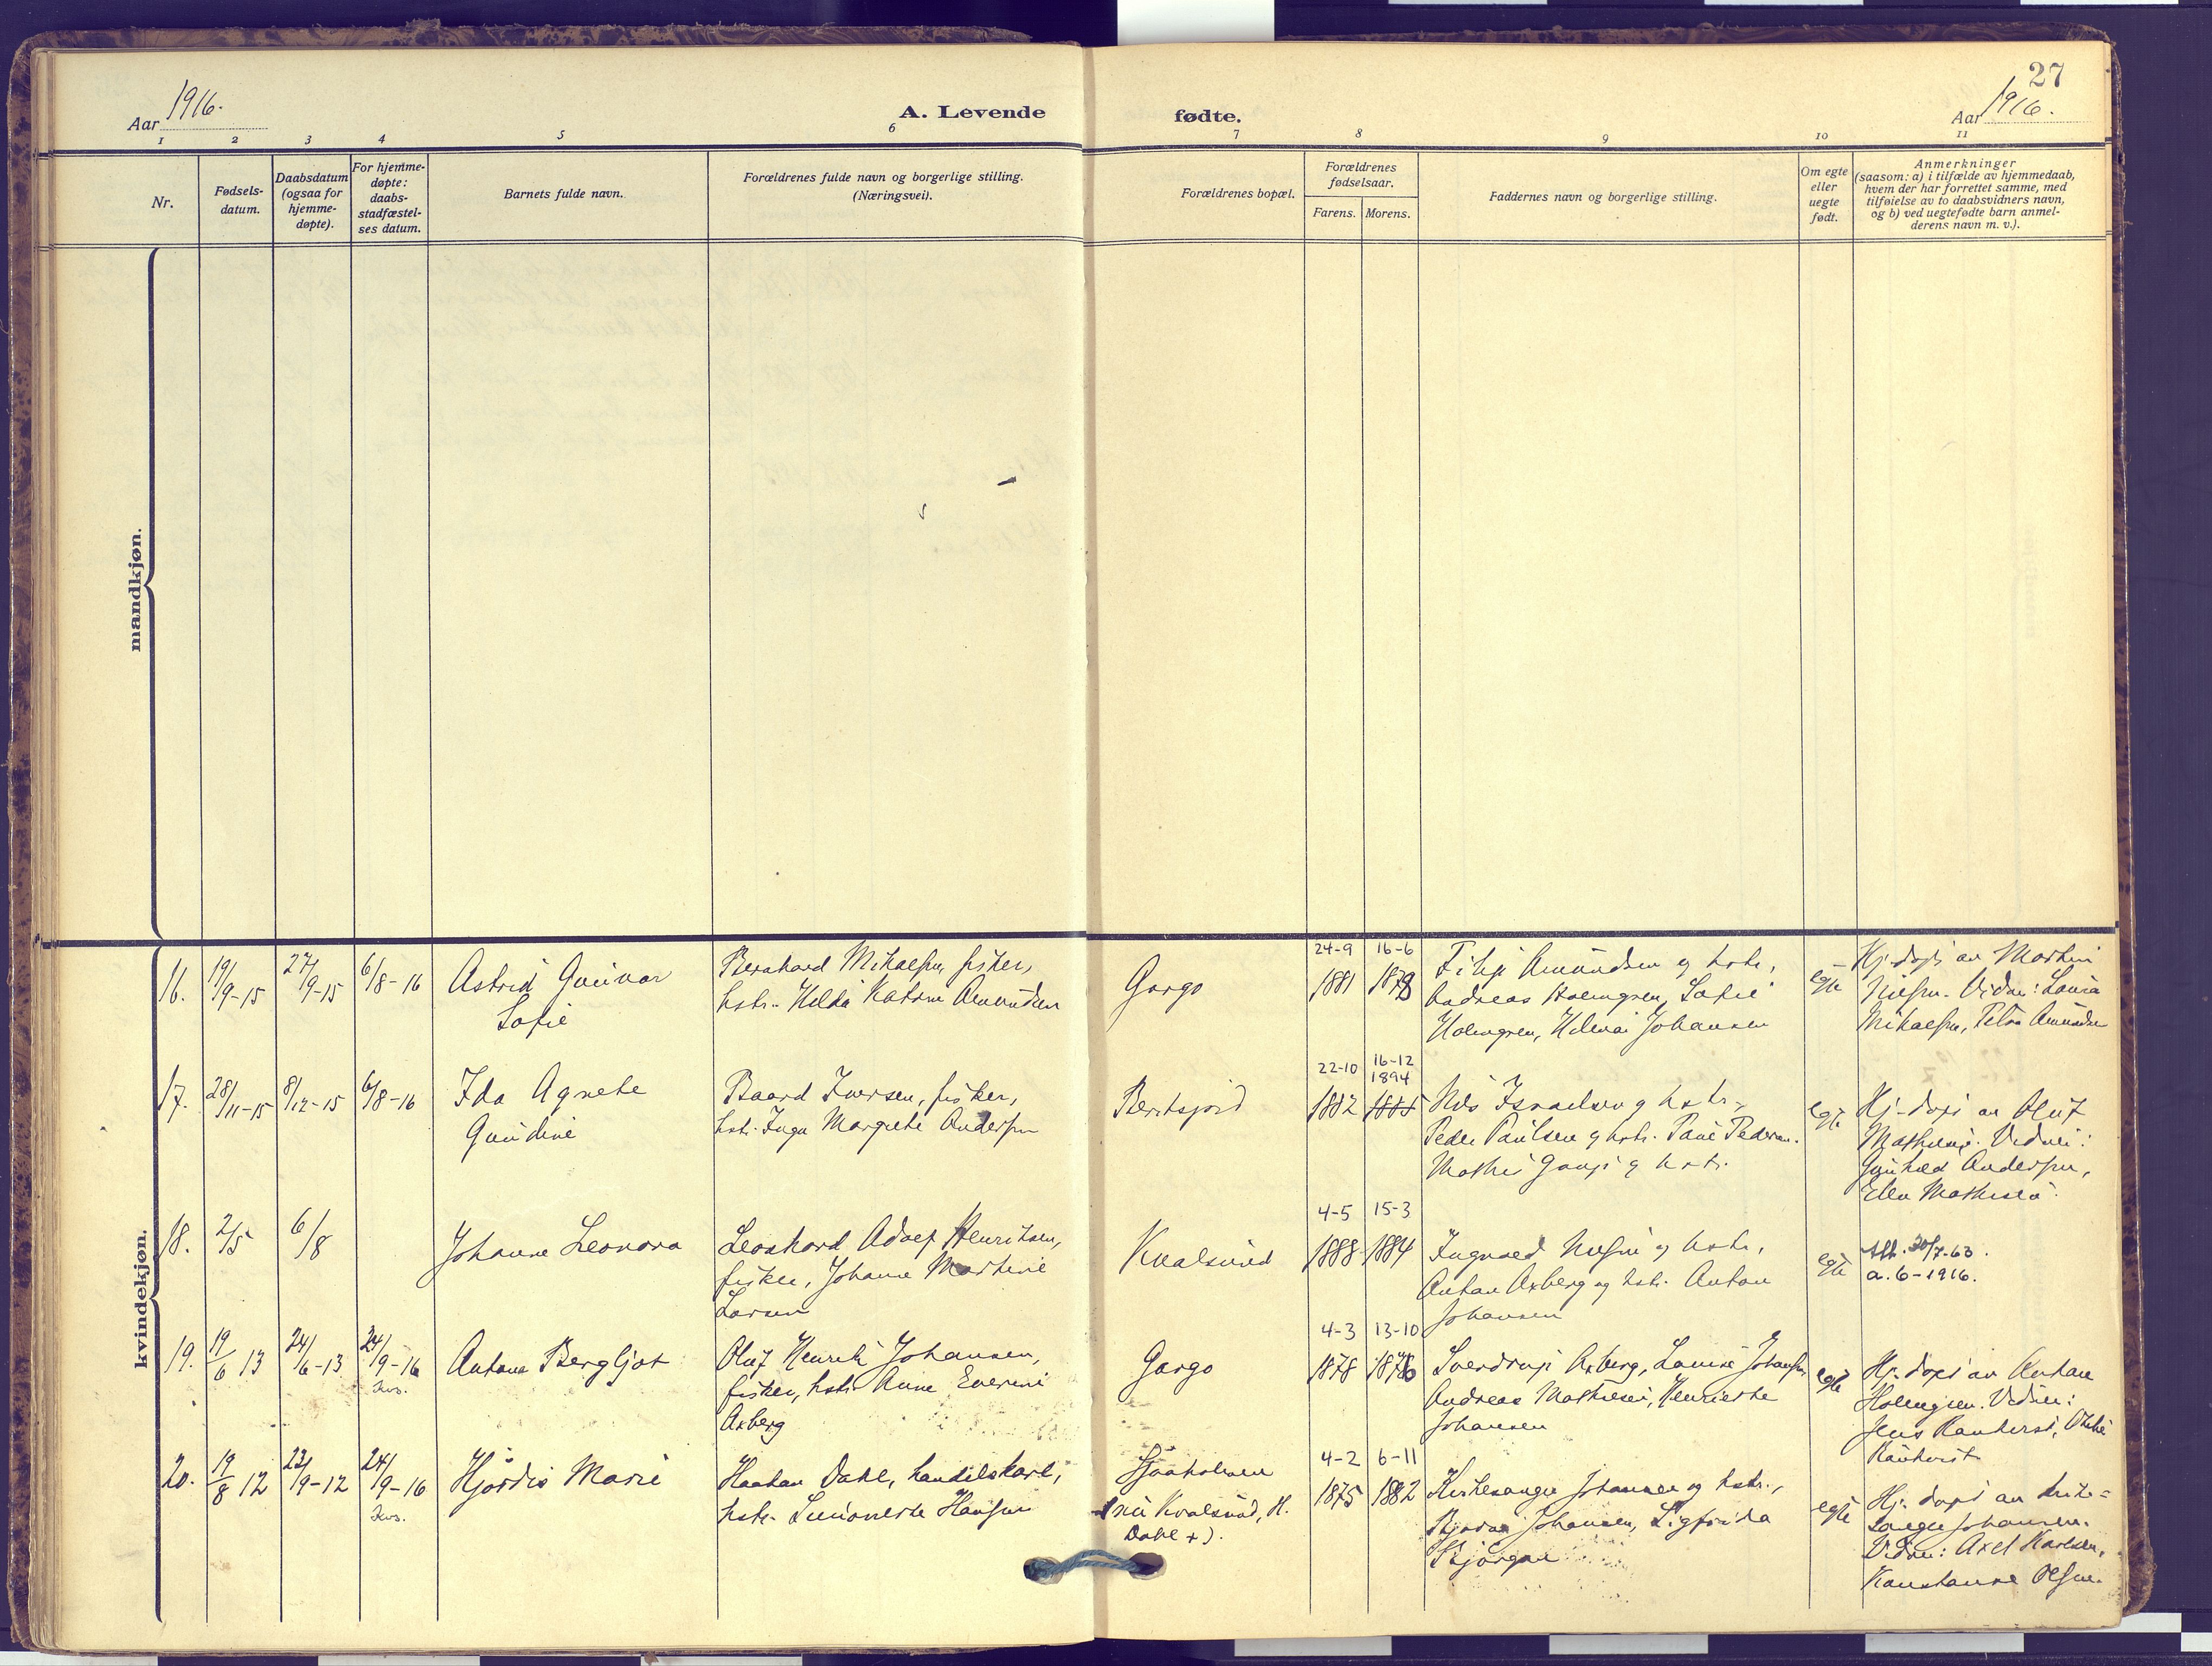 27
Aar 1916.
A. Levende fødte.
Aar 1916.
1 2 3 4 5 6 7 8 9 10 11
Nr.
Fødsels-
datum.
Daabsdatum
(ogsaa for
hjemme-
døpte).
For hjemme-
døpte:
daabs-
stadfæstel-
ses datum.
Barnets fulde navn.
Forældrenes fulde navn og borgerlige stilling.
(Næringsvei).
Forældrenes bopæl.
Forældrenes
fødselsaar.
Farens. Morens.
Faddernes navn og borgerlige stilling.
Om egte
eller
uegte
født.
Anmerkninger
(saasom: a) i tilfælde av hjemmedaab,
hvem der har forrettet samme, med
tilføielse av to daabsvidners navn,
og b) ved uegtefødte barn anmel-
derens navn m. v.).
mandkjøn.
kvindekjøn.
16.
19/9-15
27/9-15
6/8-16
Astrid Gunvor
Sofie
Bernhard Mikalsen, fisker,
hstr. Hilda Katrine Amundsen
Gargo
24-9
1881
16-6
1878
Filip Amundsen og hstr.,
Andreas Holmgren, Sofie
Holmgren, Johansen
egte
Hj. døpt av Martin
Nilsen. Vidner: Laura
Mikalsen, Petra Amundsen
17.
28/11-15
8/12-15
6/8-16
Ida Agnete
Gundine
Baard Iversen, fisker,
hstr. Inga Margrete Andersen
Beritsjord
22-10
1882
16-12
1894
1885
Nils Israelsen og hstr.,
Peder Paulsen og hstr. Pedersen.
Mathis og hstr.
egte
Hj. døpt av Oluf
Mathisen. Vidner:
Gunhild Andersen,
Ellen Mathisen.
18.
2/5
6/8
Johanne Leonora
Leonhard Adolf Henriksen,
fisker, Johanne Martine
Larsen
Kvalsund
4-5
1888
15-3
1884
Ingvald Nilsen og hstr.,
Anton Axberg og hstr. Anton
Johansen
egte
Att. 30/7-63.
a. 6-1916.
19.
19/6 13
24/6-13
24/9-16
Kvs.
Antona Bergljot
Oluf Henrik Johansen,
fisker, hstr. Anne Everine
Axberg
Gargo
4-3
1878
13-10
1876
Sverdrup Axberg, Louise Johansen,
Andreas Mathisen, Henriette
Johansen
egte
Hj. døpt av Anton
Holmgren. Vidner:
Jens
20.
19/8 12
23/9-12
24/9-16
Kvs.
Hjørdis Marie
Haakon Dahl, handelskarl,
hstr. Simonette Hansen
(nu Kvalsund, H.
Dahl +).
4-2
1875
6-11
1882
Kirkesanger Johansen og hstr.,
Johansen, Sigfrida
Bjørgan
egte
Hj. døpt av kirke=
sanger Johansen.
Vidner: Axel Karlsen,
Konstanse Olsen.